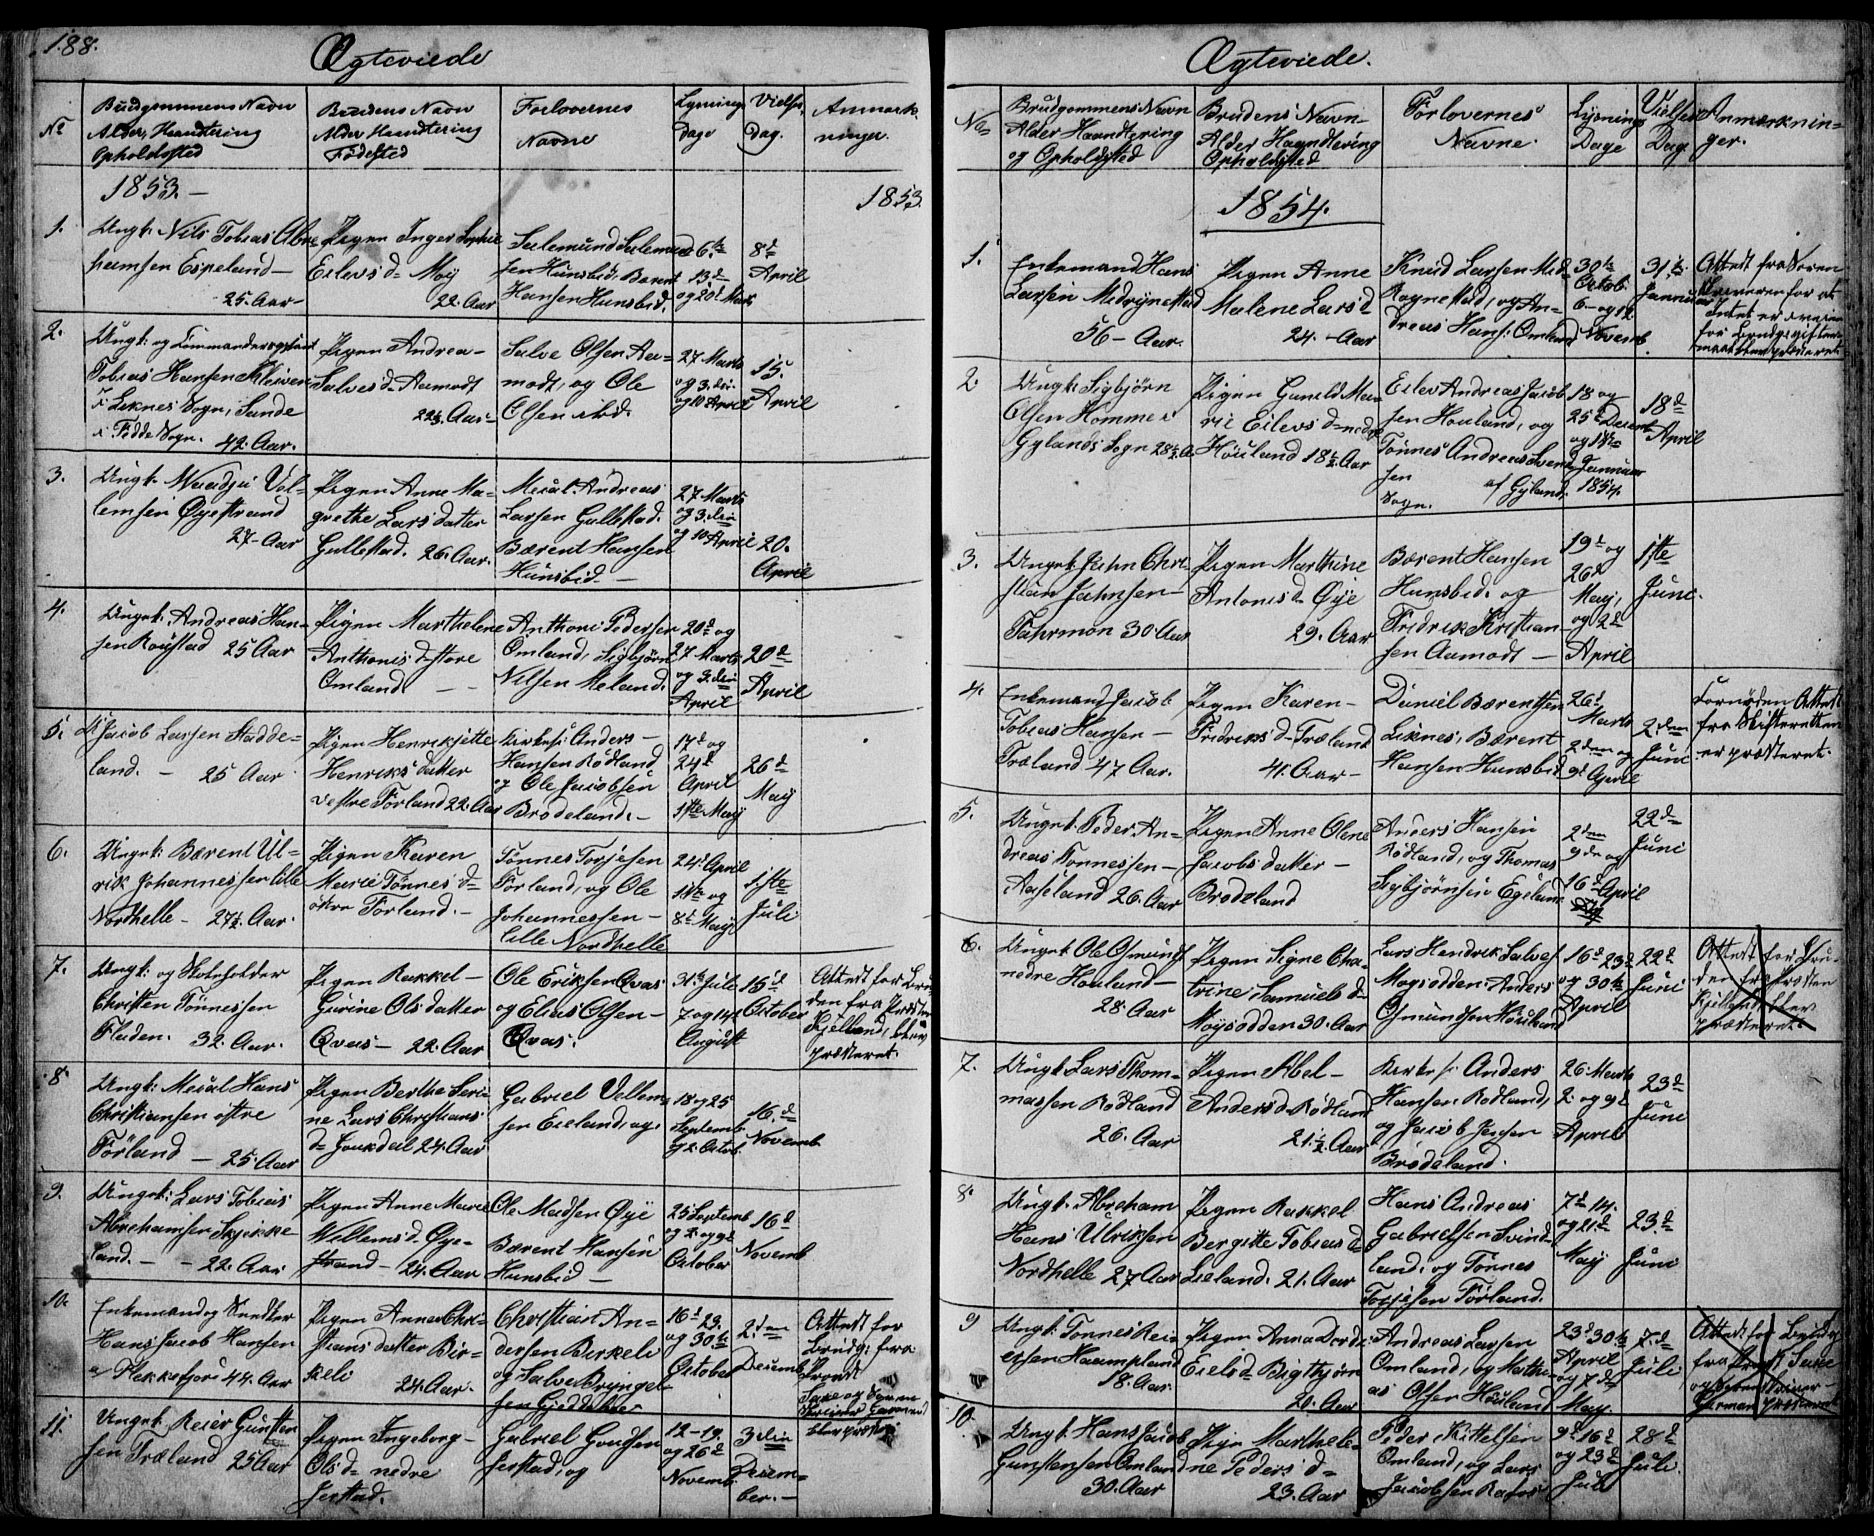 188.
Ægteviede
No
Brudgommens Navn
Alder, Haandtering
Opholdssted
Brudens Navn
Alder Haandtering
Fødested
Forlovernes
Navne
Lysnings
Dage
Vielses
Dag.
Anmærk
ninger.
1853. —
1853.
1.
Ungk: Nils Tobias Abra
hamsen Espeland —
25. Aar —
Pigen Inger Sophie
Eilevsd. Moy
22. Aar
Salemund Salemund
sen Hunsbed. Bærent
Hansen Hunsbed.
6te
13d
og 20d Marts
8d
April
2.
Tobias Hansen Kleiven
i Liknes Sogn, Sande
i Fedde Sogn. 42. Aar.
Pigen Andrea —
Salvesd. Aamodt
22½ Aar —
Salve Olsen Aa-
modt, og Ole
Olsen ibd.
27 Marts
og 3. din
og 10 April
15.
April
3.
lemsen Øyestrand
27 — Aar
Pigen Anne Ma-
grethe Larsdatter
Gullestad. 26. Aar.
Larsen Gullestad.
Bærent Hansen
Hunsbed —
27 Marts
og 3. din
og 10 April
20.
April
4.
Ungk. Andreas Han-
sen Røustad 25 Aar
Pigen Marthelene
Anthonisd. store
Omland —
Anthoni Pedersen
Omland, Sigbjørn
Nilsen Meland.
20d og
27 Marts
og 3. din
April
20d
April
5.
Jacob Larsen Stadde-
land. — 25 Aar
Pigen Henrikjette
Henriksdatter
vestre Førland 22. Aar
Kirkes. Anders —
Hansen Rødland
og Ole Jacobsen
Brødeland. —
17d og
24d
April
1ste Maij
26d
Maij
6.
Ungk: Bærent Ul-
rik Johannessen Lille
Nordhelle — 27½. Aar.
Pigen Karen
Marie Tønnesd.
østre Førland. —
Tønnes Torjesen
Førland, og Ole
Johannessen —
Lille Nordhelle
24d April
1ste og
8d Maij
1ste
Juli
7.
Ungk: og Skoleholder
Christen Tønnessen
Fladen. 32. Aar.
Pigen Rakkel —
Gurine Olsdatter
Qvas — 22. Aar
Ole Eriksen Qvas
og Elias Olsen —
Qvas.
31te Juli
7 og 14d
August
15d
October
Attest for Bru
den fra Provsten
Kjelland, blev
præsteret.
8
Christiansen østre
Førland — 25. Aar
Pigen Berthe Seri-
ne Lars Christians
d. 24. Aar
Gabriel Vellem
sen Eieland, og
18 og 25
Septemb
og 2. Octob.
16. d
Novemb
9.
Ungk: Lars Tobias
Abrahamsen Skjekke
land. — 22. Aar
Pigen Anne Marie
Willemsd. Øye-
strand — 24. Aar
Ole Madsen Øye
Bærent Hansen
Hunsbed —
25 Septemb
og 2. og 9d
October
16d
Novemb
10.
Enkemand og Snedker
Hans Jacob Hansen
a/ Flekkefjord 44. Aar
Pigen Anne Chri-
stiansdatter Bir-
keli 24. Aar.
Christian An-
dersen Birkeli
og Salve Bryngel
sen
16d 23.
og 30te
October
2. den
Decemb
Attest for
Brudg: fra
Provst
blev præst.
11.
Ungk. Reier Gunsten
sen Træland 25 Aar
Pigen Ingeborg —
Olsd. nedre
Jerstad.
Gabriel
Jerstad, og
12 — 19.
og 26d
Novemb
3 din
Decem-
ber. —
Ægteviede.
No
Brudgommens Navn
Alder Haandtering
og Opholdssted
Brudens Navn
Alder Haandtering
Opholdssted
Forlovernes
Navne.
Lysnings
Dage
Vielses
Dage
Anmærknin-
ger.
1854.
1.
Enkemand Hans
Larsen Medrognestad
56 — Aar.
Pigen Anne
Malene Larsd
24. — Aar
Knud Larsen Med
Rognestad, og An-
dreas Hans: Omland
30te
Octob
6 — og 12
Novemb
31te
Januar
2.
Ungk: Sigbjørn
Olsen Homme i
Gylands Sogn 28½ A
Pigen Gunild Ma-
rie Eilevsd. nedre
Høuland 18½. Aar
Eilev Andreas Jacob
sen Høuland, og
Tønnes Andreas Svend
sen af Gyland
Sogn.
18 og
25d Decemb
og 1ste
Januar
1854.
18d
April
3.
Ungk. Jahn Chri-
stian Jahnsen —
Fahrmon 30. Aar
Pigen Marthine
Antonisd. Øye
29. Aar
Bærent Hansen
Hunsbed. og
Fredrik Kristian-
sen Aamodt —
19d og
26d
og 2d
April
1ste
Juni.
4.
Enkemand Jacob
Tobias Hansen —
Træland 47 Aar.
Pigen Karen —
Fredriksd. Træland
41. Aar —
Daniel Bærentsen
Liknes, Bærent
Hansen Hunsbed
26d
Marts
2den og
9d April
2. den
Juni
Fornøden Attest
fra Skifteretten
er præsteret.
5.
Ungk. Peder An-
dreas Tønnessen —
Aaseland 26. Aar
Pigen Anne Olene
Jacobsdatter —
Brødeland
Anders Hansen
Rødland, og Thomas
Sigbjørnsen Egeland
2den
9de og
16d April
22de
Juni
6.
Ungk. Ole Osmunds
nedre Høuland —
28. Aar
Pigen Signe Cha-
trine Samuelsd.
Moysødden 30. Aar
Lars Hendrik Salves
Moysødden. Anders
Osmundsen Høuland
16d 23d
og 30te
April
22d
Juni
Attest for Bru-
den fra Provsten
Kjelland blev
præsteret.
7.
Ungk. Lars Thom-
massen Rødland
26. Aar
Pigen Abel —
Andersd. Rødland
21½. Aar
Kirkes. Anders
Hansen Rødland,
og Jacob Jensen
Brødeland.
26. Marts
2. og 9d
April
23d
Juni
8.
Ungk. Abraham
Hans Ulriksen
Nordhelle 27 Aar
Pigen Rakkel
Bergitte Tobiasd
Lieland. 21. Aar
Hans Andreas
Gabrielsen Svind-
land, og Tønnes
Torjesen Førland.
7d 14.
og 21d
Maij
23.d
Juni
9
Ungk. Tønnes Rei-
ersen Haampland
18. Aar.
Pigen Anna
21. Aar
Andreas Larsen
Omland, og Mathi-
as Olsen Høuland
23d 30te
April
og 7de
Maij.
7.d
Juli
Attest for Brudg
10.
Ungk. Hans Jacob
Gunstensen Omland
30. Aar
Pign Marthele-
ne Pedersd.
23. Aar
Peder Kittelsen
Omland, og Lars
Jacobsen
9d 16d
og 23d
Juli
28d
Juli.